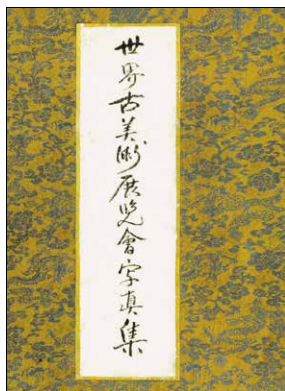 世界古美術展覧會写真集